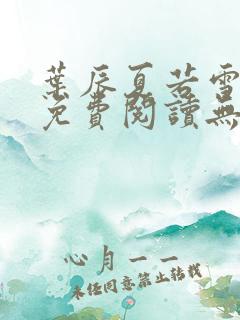 葉辰夏若雪
免費閱讀無
心月一一
未经同意禁止转载